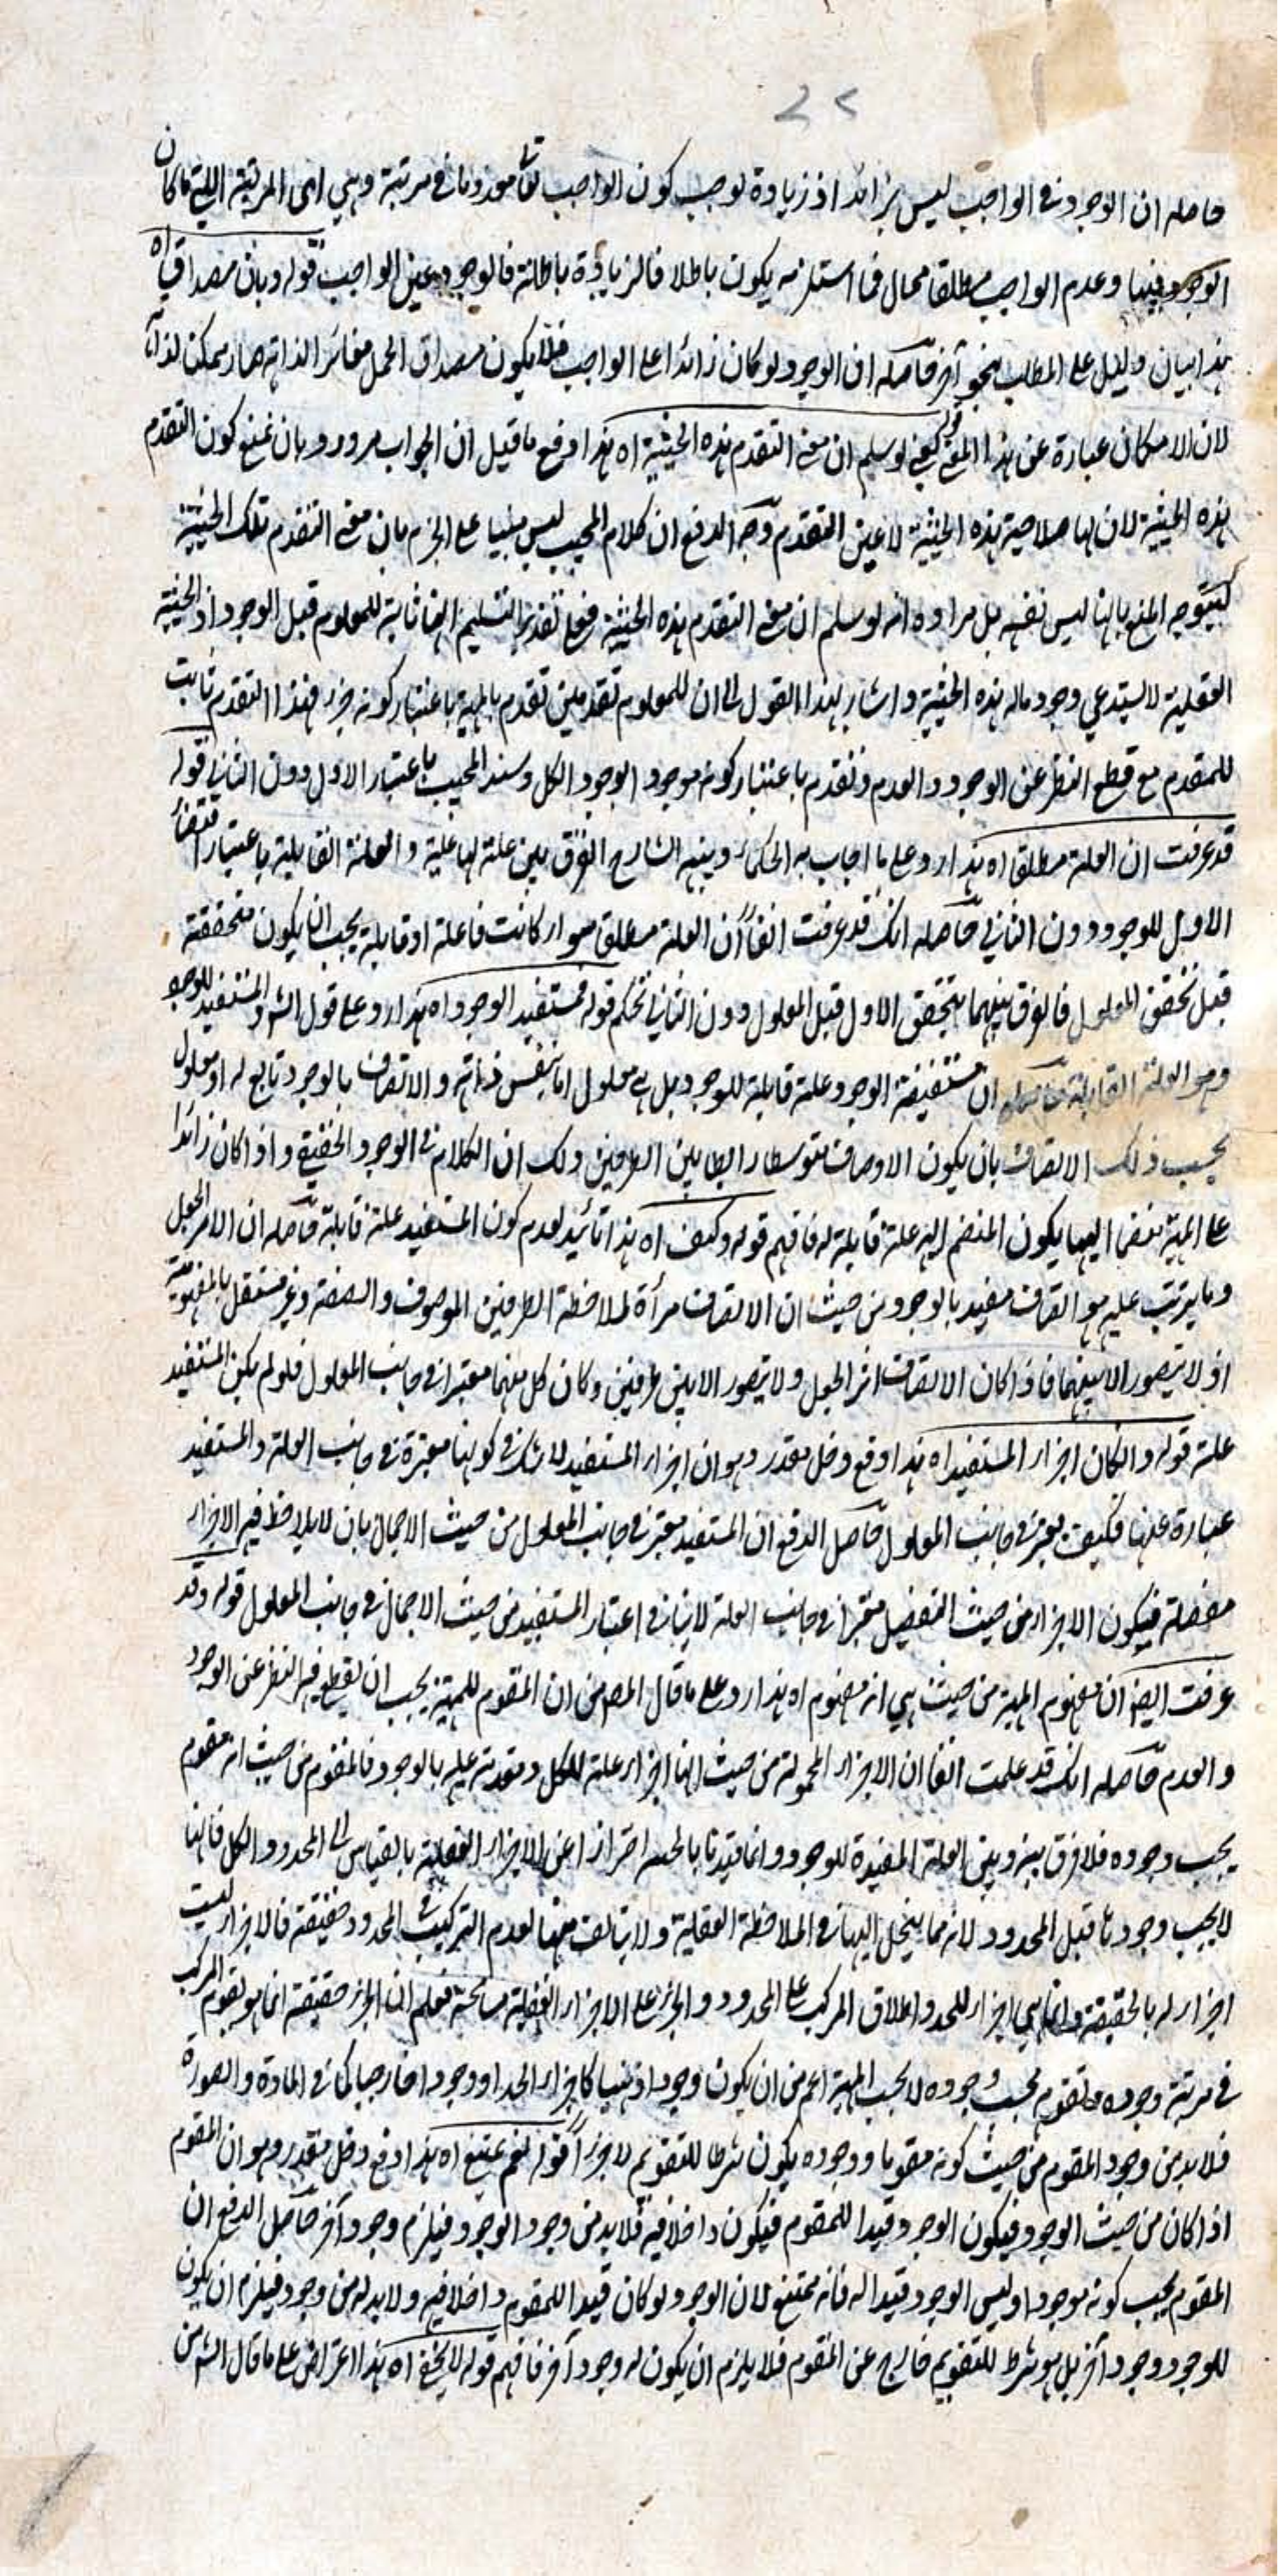 ٢٢
حاصله ان الوجود في الواجب ليس بزائد اذ زيادة توجب كون الواجب تعالى معدوما في مرتبة وهي اى المرتبة التي ما كان
الوجود فيها وعدم الواجب مطلقا محال فما استلزمه يكون باطلا فالزيادة باطلة فالوجود عين الواجب قوله وبان مصداق اه
هذا بيان دليل على المطلب بنحو آخر حاصله ان الوجود لو كان زائدا على الواجب فلا يكون مصداق الحمل مغائر الذاته صار ممكن لذاته
لان الامكان عبارة عن هذا المعنى قوله يعني لو سلم ان معنى التقدم هذه الحيثية اه هذا دفع ما قيل ان الجواب مردود بان نمنع كون التقدم
هذه الحيثية لان لها صلاحية هذه الحيثية لا عين التقدم وجه الدفع ان كلام المجيب ليس مبنيا على الجزم بان معنى التقدم تلك الحيثية
ليتوجه المنع بانها ليس نفسه بل مراده انه لو سلم ان معنى التقدم هذه الحيثية فعلى تقدير التسليم انها ثابتة للمعلوم قبل الوجود اذ الحيثية
العقلية لا يستدعي وجود ماله هذه الحيثية واشار بهذا القول الى ان للمعلوم تقدمين تقدم بالمهية باعتبار كونه جزء فهذا التقدم ثابت
للمتقدم مع قطع النظر عن الوجود والعدم وتقدم باعتبار كونه موجود الوجود الكل وسند المجيب باعتبار الاول دون الثاني قوله
قد عرفت ان العلة مطلقا اه هذا رد على ما اجاب به الحكماء وبينه الشارح الفرق بين علة الفاعلية والعلة القابلية باعتبار اقتضاء
الاول للوجود دون الثاني حاصله انك قد عرفت انفا ان العلة مطلق سواء كانت فاعلة او قابلة يجب ان يكون متحققة
قبل تحقق المعلول فالفرق بينهما بتحقق الاول قبل المعلول دون الثاني تحكم قوله فمستفيد الوجود اه هذا رد على قول الش والمستفيد للوجود
وهو العلة القابلة حاصله ان مستفيضة الوجود علة قابلة للوجود بل هي معلول اما بنفس ذاته والاتصاف بالوجود تابع له او معلول
بحسب ذلك الاتصاف بان يكون الاوصاف بتوسط رابط بين الطرفين ولك ان الكلام في الوجود الحقيقي واذا كان زائدا
على المهية منضما اليها يكون المنضم اليه علة قابلة له فافهم قوله وكيف اه هذا تائيد لعدم كون المستفيد علة قابلة حاصله ان الاثر الجعل
وما يترتب عليه هو اتصاف مفيد بالوجود من حيث ان الاتصاف مرآة لملاحظة الطرفين الموصوف والصفة وغير مستقل بالمفهومية
اذ لا يتصور الا بينهما فاذا كان الاتصاف اثر الجعل ولا يتصور الا بين طرفين وكان كل منهما معتبرا في جانب المعلول فلو لم يكن المستفيد
علة قوله وان كان اجزاء المستفيد اه هذا دفع دخل مقدر وهو ان اجزاء المستفيد لا شك في كونها معتبرة في جانب العلة والمستفيد
عبارة عنها فكيف يعتبر في جانب المعلول حاصل الدفع ان المستفيد معتبر في جانب المعلول من حيث الاجمال بان لا يلاحظ فيه الاجزاء
مفصلة فيكون الاجزاء من حيث التفصيل معتبرا في جانب العلة لا ينافي اعتبار المستفيد من حيث الاجمال في جانب المعلول قوله وقد
عرفت ايضا ان مفهوم المهية من حيث هي انه مفهوم اه هذا رد على ما قال المص من ان المقوم للمهية يجب ان يقطع فيه النظر عن الوجود
والعدم حاصله انك قد علمت انفا ان الاجزاء المحمولة من حيث انها اجزاء علة للكل ومقدمة عليه بالوجود فالمقوم من حيث انه مقوم
يجب وجوده فلا فرق بينه وبين العلة المفيدة للوجود وانما قيدنا بالحد احتراز اعن الاجزاء العقلية بالقياس الى المحدود الكل فانها
لا يجب وجودها قبل المحدود لانه مما ينحل اليها في الملاحظة العقلية ولا يتالف منها لعدم التركيب في المحدود حقيقة فالاجزاء ليست
اجزاء له بالحقيقة وانما هي اجزاء للحد واطلاق المركب على المحدود والجزء على الاجزاء العقلية مسامحة فعلم ان الجزء حقيقة انما هو يقوم المركب
في مرتبة وجوده ويتقوم بحسب وجوده لا بحسب المهية اعم من ان يكون وجودا ذهنيا كاجزاء الحد او وجودا خارجيا كما في المادة والصورة
فلا بد من وجود المقوم من حيث كونه مقوما ووجوده يكون شرطا للتقويم لا جزءا قوله نعم يمتنع اه هذا دفع دخل مقدر وهو ان المقوم
اذا كان من حيث الوجود فيكون الوجود قيدا للمقوم فيكون داخلا فيه فلا بد من وجود الوجود فيلزم وجود آخر حاصل الدفع ان
المقوم يجب كونه موجودا وليس الوجود قيدا له فانه ممتنع لان الوجود لو كان قيدا للمقوم داخلا فيه ولا بد له من وجود فيلزم ان يكون
للوجود وجود آخر بل هو شرط للتقويم خارج عن المقوم فلا يلزم ان يكون له وجود آخر فافهم قوله لا يخفى اه هذا اعتراض على ما قال الش من